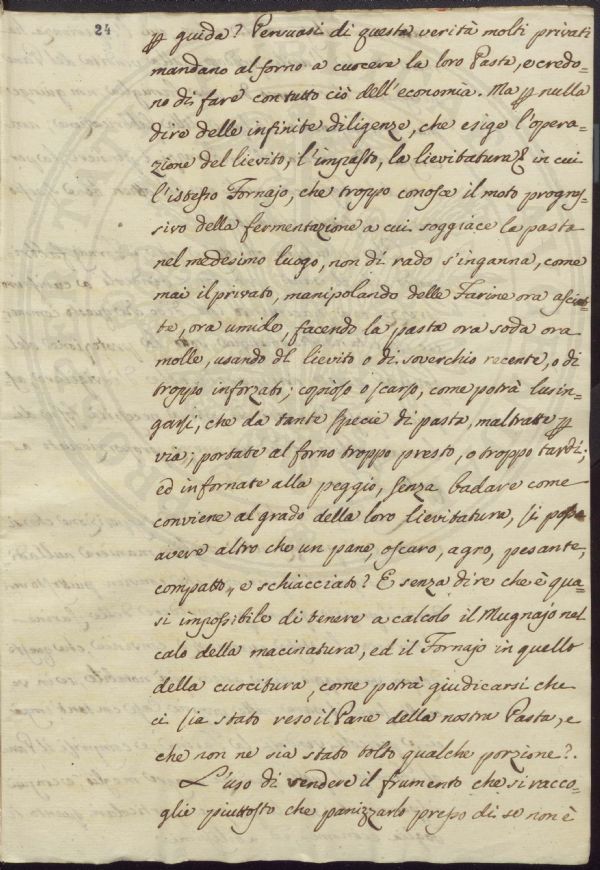 24
ꝑ guida? Persuasi di questa verità molti privati
mandano al forno a cuocere la loro Pasta, e credo-
no di fare con tutto ciò dell'economia. Ma ꝑ nulla
dire delle infinite diligenze, che esige l'opera-
zione del lievito, l'impasto, la lievitatura & in cui
l'istesso Fornajo, che troppo conosce il moto progres-
sivo della fermentazione a cui soggiace la pasta
nel medesimo luogo, non di rado s'inganna, come
mai il privato, manipolando delle Farine ora asciut-
te, ora umide, facendo la pasta ora soda ora
molle, usando del lievito o di soverchio recente, o di
troppo inforzato; copioso o scarso, come potrà lusin-
garsi, che da tante specie di pasta, maltratte ꝑ
via; portate al forno troppo presto, o troppo tardi;
ed infornate alla peggio, senza badare come
conviene al grado della loro lievitatura, si possa
avere altro che un pane, oscuro, agro, pesante,
compatto, e schiacciato? E senza dire che è qua-
si impossibile di tenere a calcolo il Mugnajo nel
calo della macinatura, ed il Fornajo in quello
della cuocitura, come potrà giudicarsi che
ci sia stato reso il Pane della nostra Pasta, e
che non ne sia stato tolto qualche porzione?.
L'uso di vendere il frumento che si racco-
glie piuttosto che panizzarlo presso di se non è